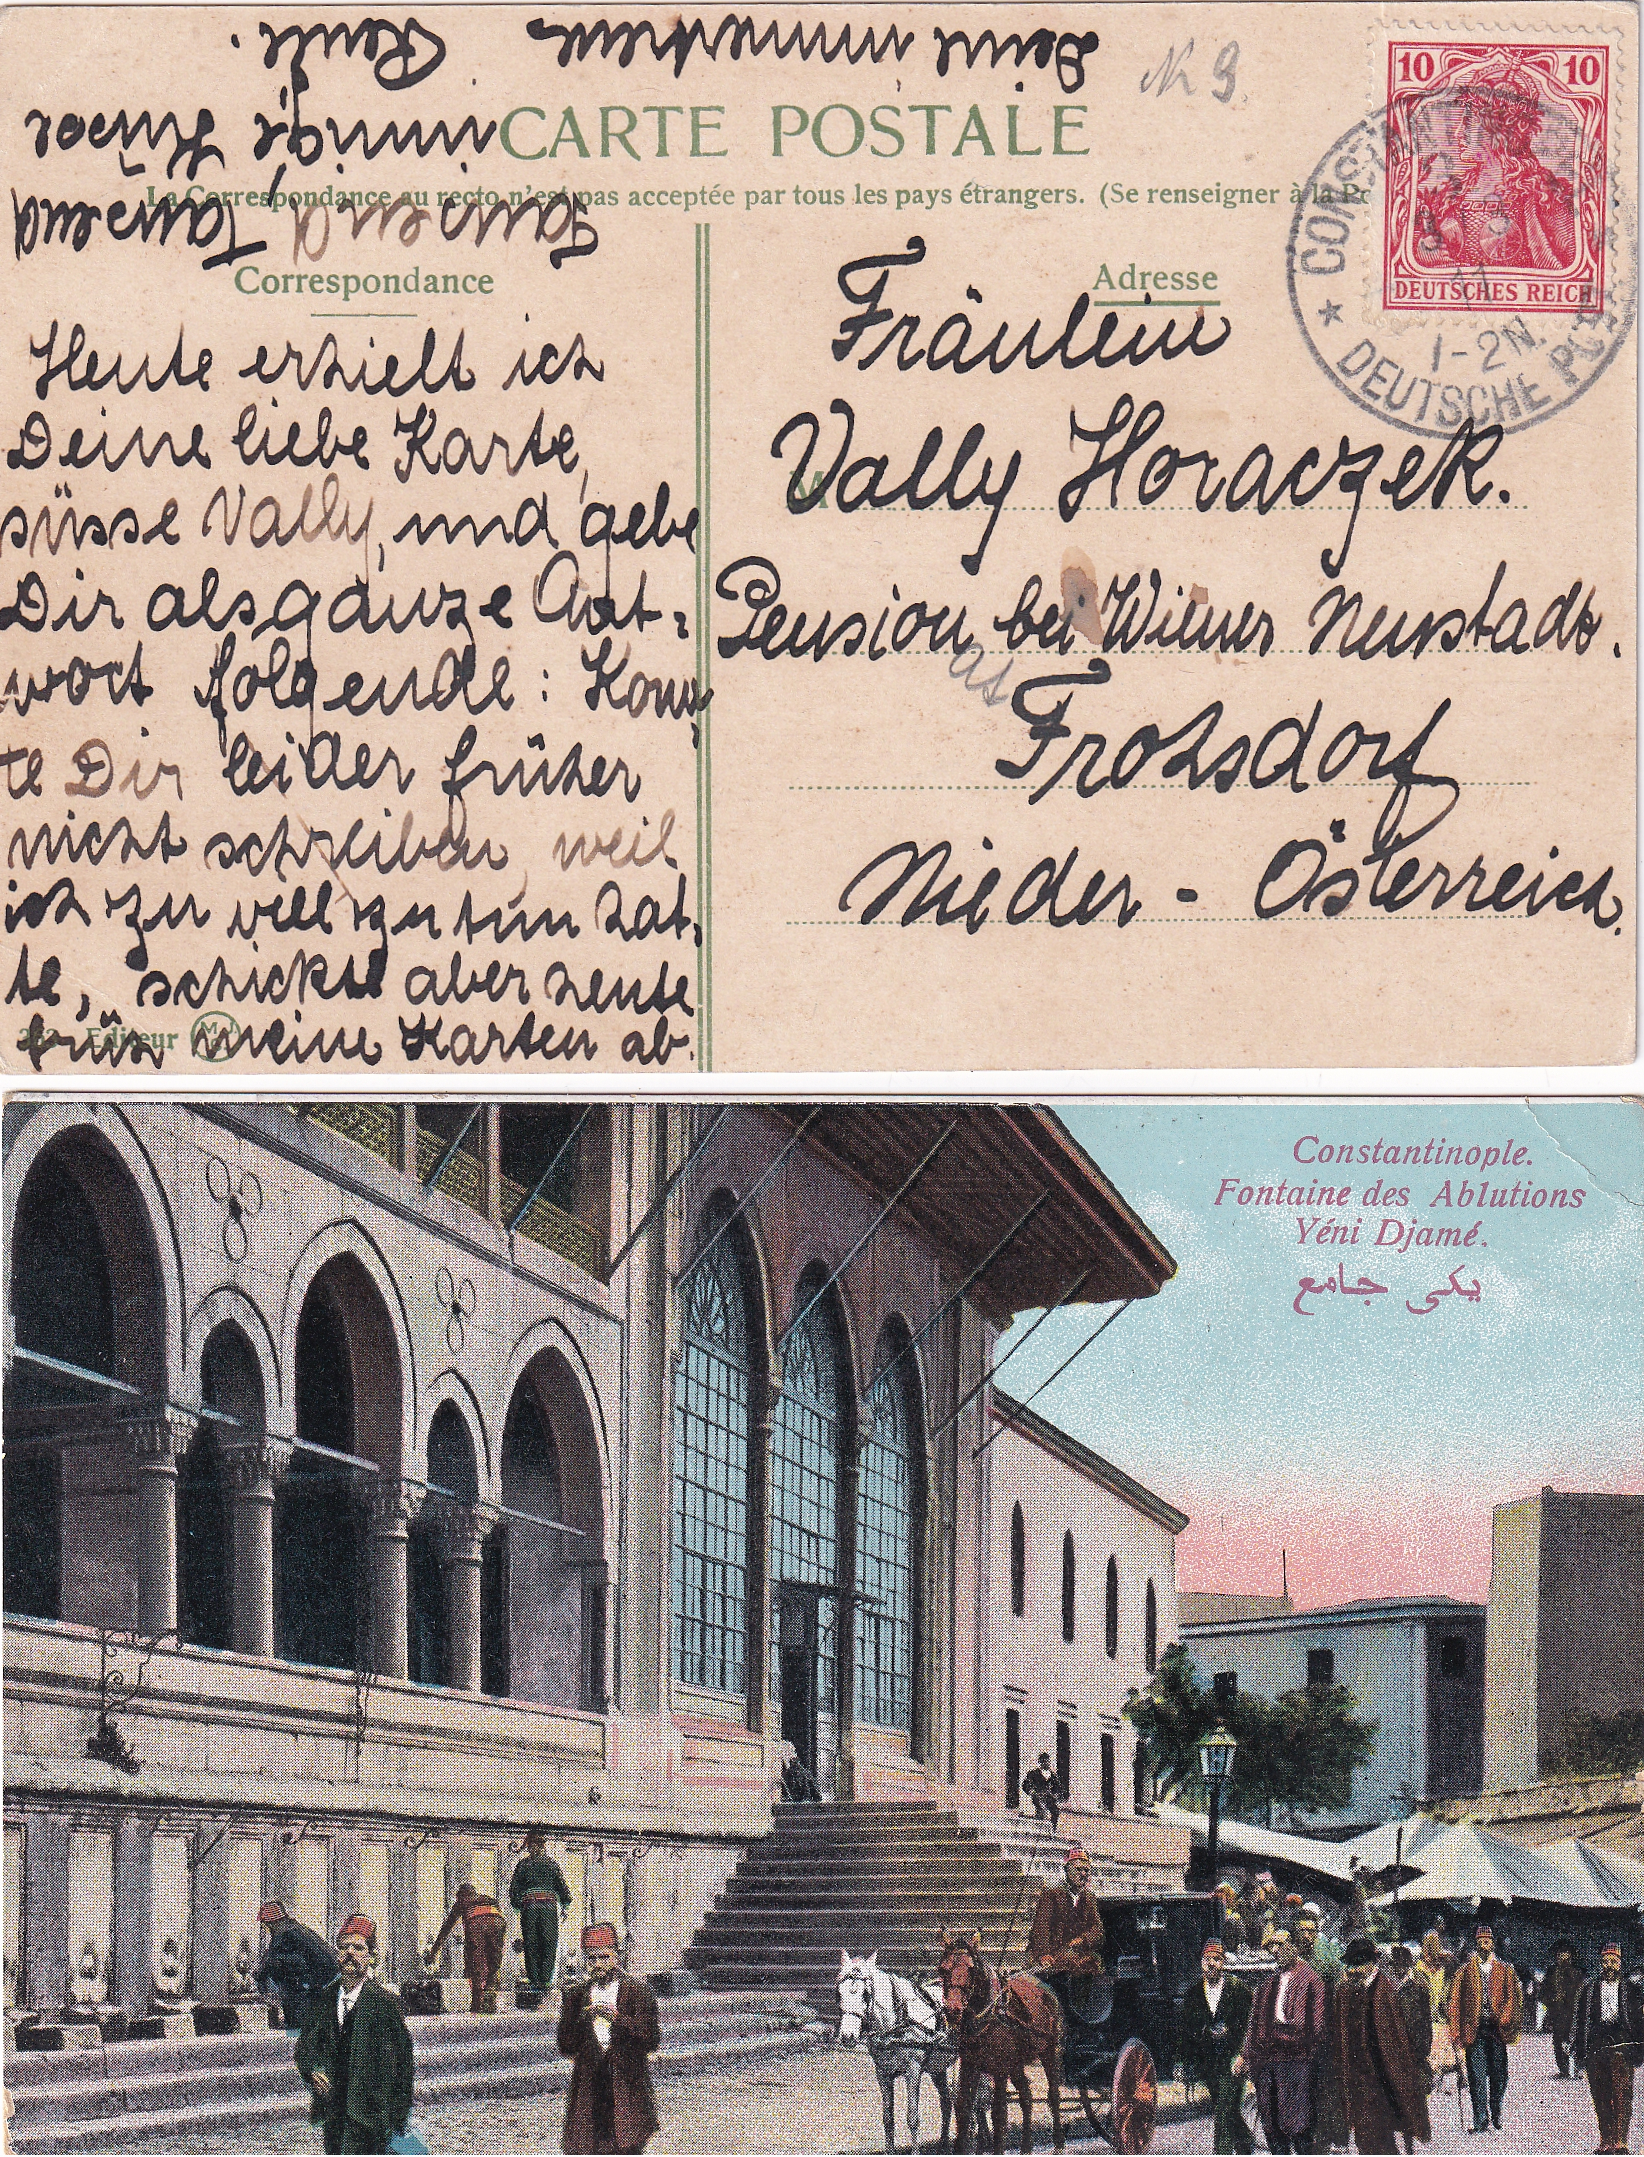 CARTE POSTALE
La Correspondance au recto n'est pas acceptée par tous les pays étrangers. (Se renseigner à la
Correspondance
Adresse
Nr 9.
Heute erhielt ich
Deine liebe Karte,
süsse Vally, und gebe
Dir als ganze Ant-
wort folgende: Konn-
te Dir leider früher
nicht schreiben, weil
ich zu viel zu tun hat-
te, schickte aber heute
früh meine Karten ab.
Tausend Tausend
innige Küsse
Deine immertreue
Fräulein
Vally Horaczek.
Pension bei Wiener Neustadt.
Frohsdorf
Nieder-Österreich.
10 10
DEUTSCHES REICH
CONSTANTINOPEL
11
1-2N.
* DEUTSCHE POST
Editeur M.J.C.
Constantinople.
Fontaine des Ablutions
Yéni Djamé.
يكى جامع